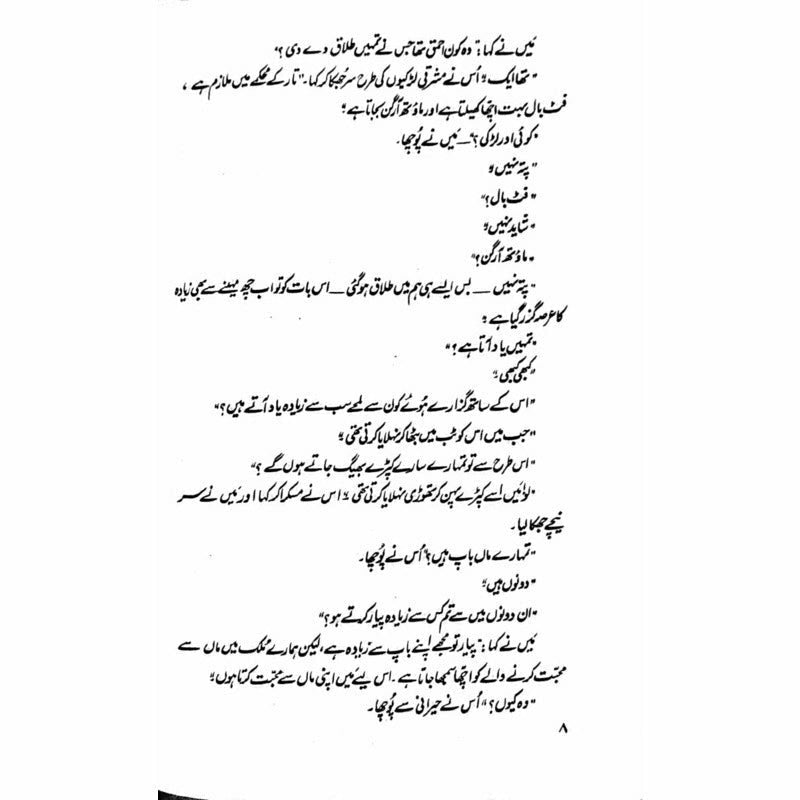 مَیں نے کہا: "وہ کون احمق تھا جس نے تمہیں طلاق دے دی؟"
"تھا ایک" اُس نے مشرقی لڑکیوں کی طرح سر جُھکا کر کہا۔ "تار کے محکمے میں ملازم ہے،
فٹ بال بہت اچھا کھیلتا ہے اور ماؤتھ آرگن بجاتا ہے"
"کوئی اور لڑکی؟" — مَیں نے پُوچھا۔
"پتہ نہیں"
"فٹ بال؟"
"شاید نہیں"
"ماؤتھ آرگن؟"
"پتہ نہیں — بس ایسے ہی ہم میں طلاق ہو گئی — اس بات کو تو اب چھ مہینے سے بھی زیادہ
کا عرصہ گزر گیا ہے"
"تمہیں یاد آتا ہے؟"
"کبھی کبھی"
"اس کے ساتھ گزارے ہُوئے کون سے لمحے سب سے زیادہ یاد آتے ہیں؟"
"جب میں اس کو ٹب میں بٹھا کر نہلایا کرتی تھی"
"اس طرح سے تو تمہارے سارے کپڑے بھیگ جاتے ہوں گے؟"
"لو مَیں اسے کپڑے پہن کر تھوڑی نہلایا کرتی تھی" اس نے مسکرا کر کہا اور مَیں نے سر
نیچے جھکا لیا۔
"تمہارے ماں باپ ہیں؟" اُس نے پُوچھا۔
"دونوں ہیں"
"ان دونوں میں سے تم کس سے زیادہ پیار کرتے ہو؟"
مَیں نے کہا: "پیار تو مجھے اپنے باپ سے زیادہ ہے، لیکن ہمارے مُلک میں ماں سے
محبّت کرنے والے کو اچھا سمجھا جاتا ہے۔ اس لیے مَیں اپنی ماں سے محبّت کرتا ہوں"
"وہ کیوں؟" اُس نے حیرانی سے پُوچھا۔
۸